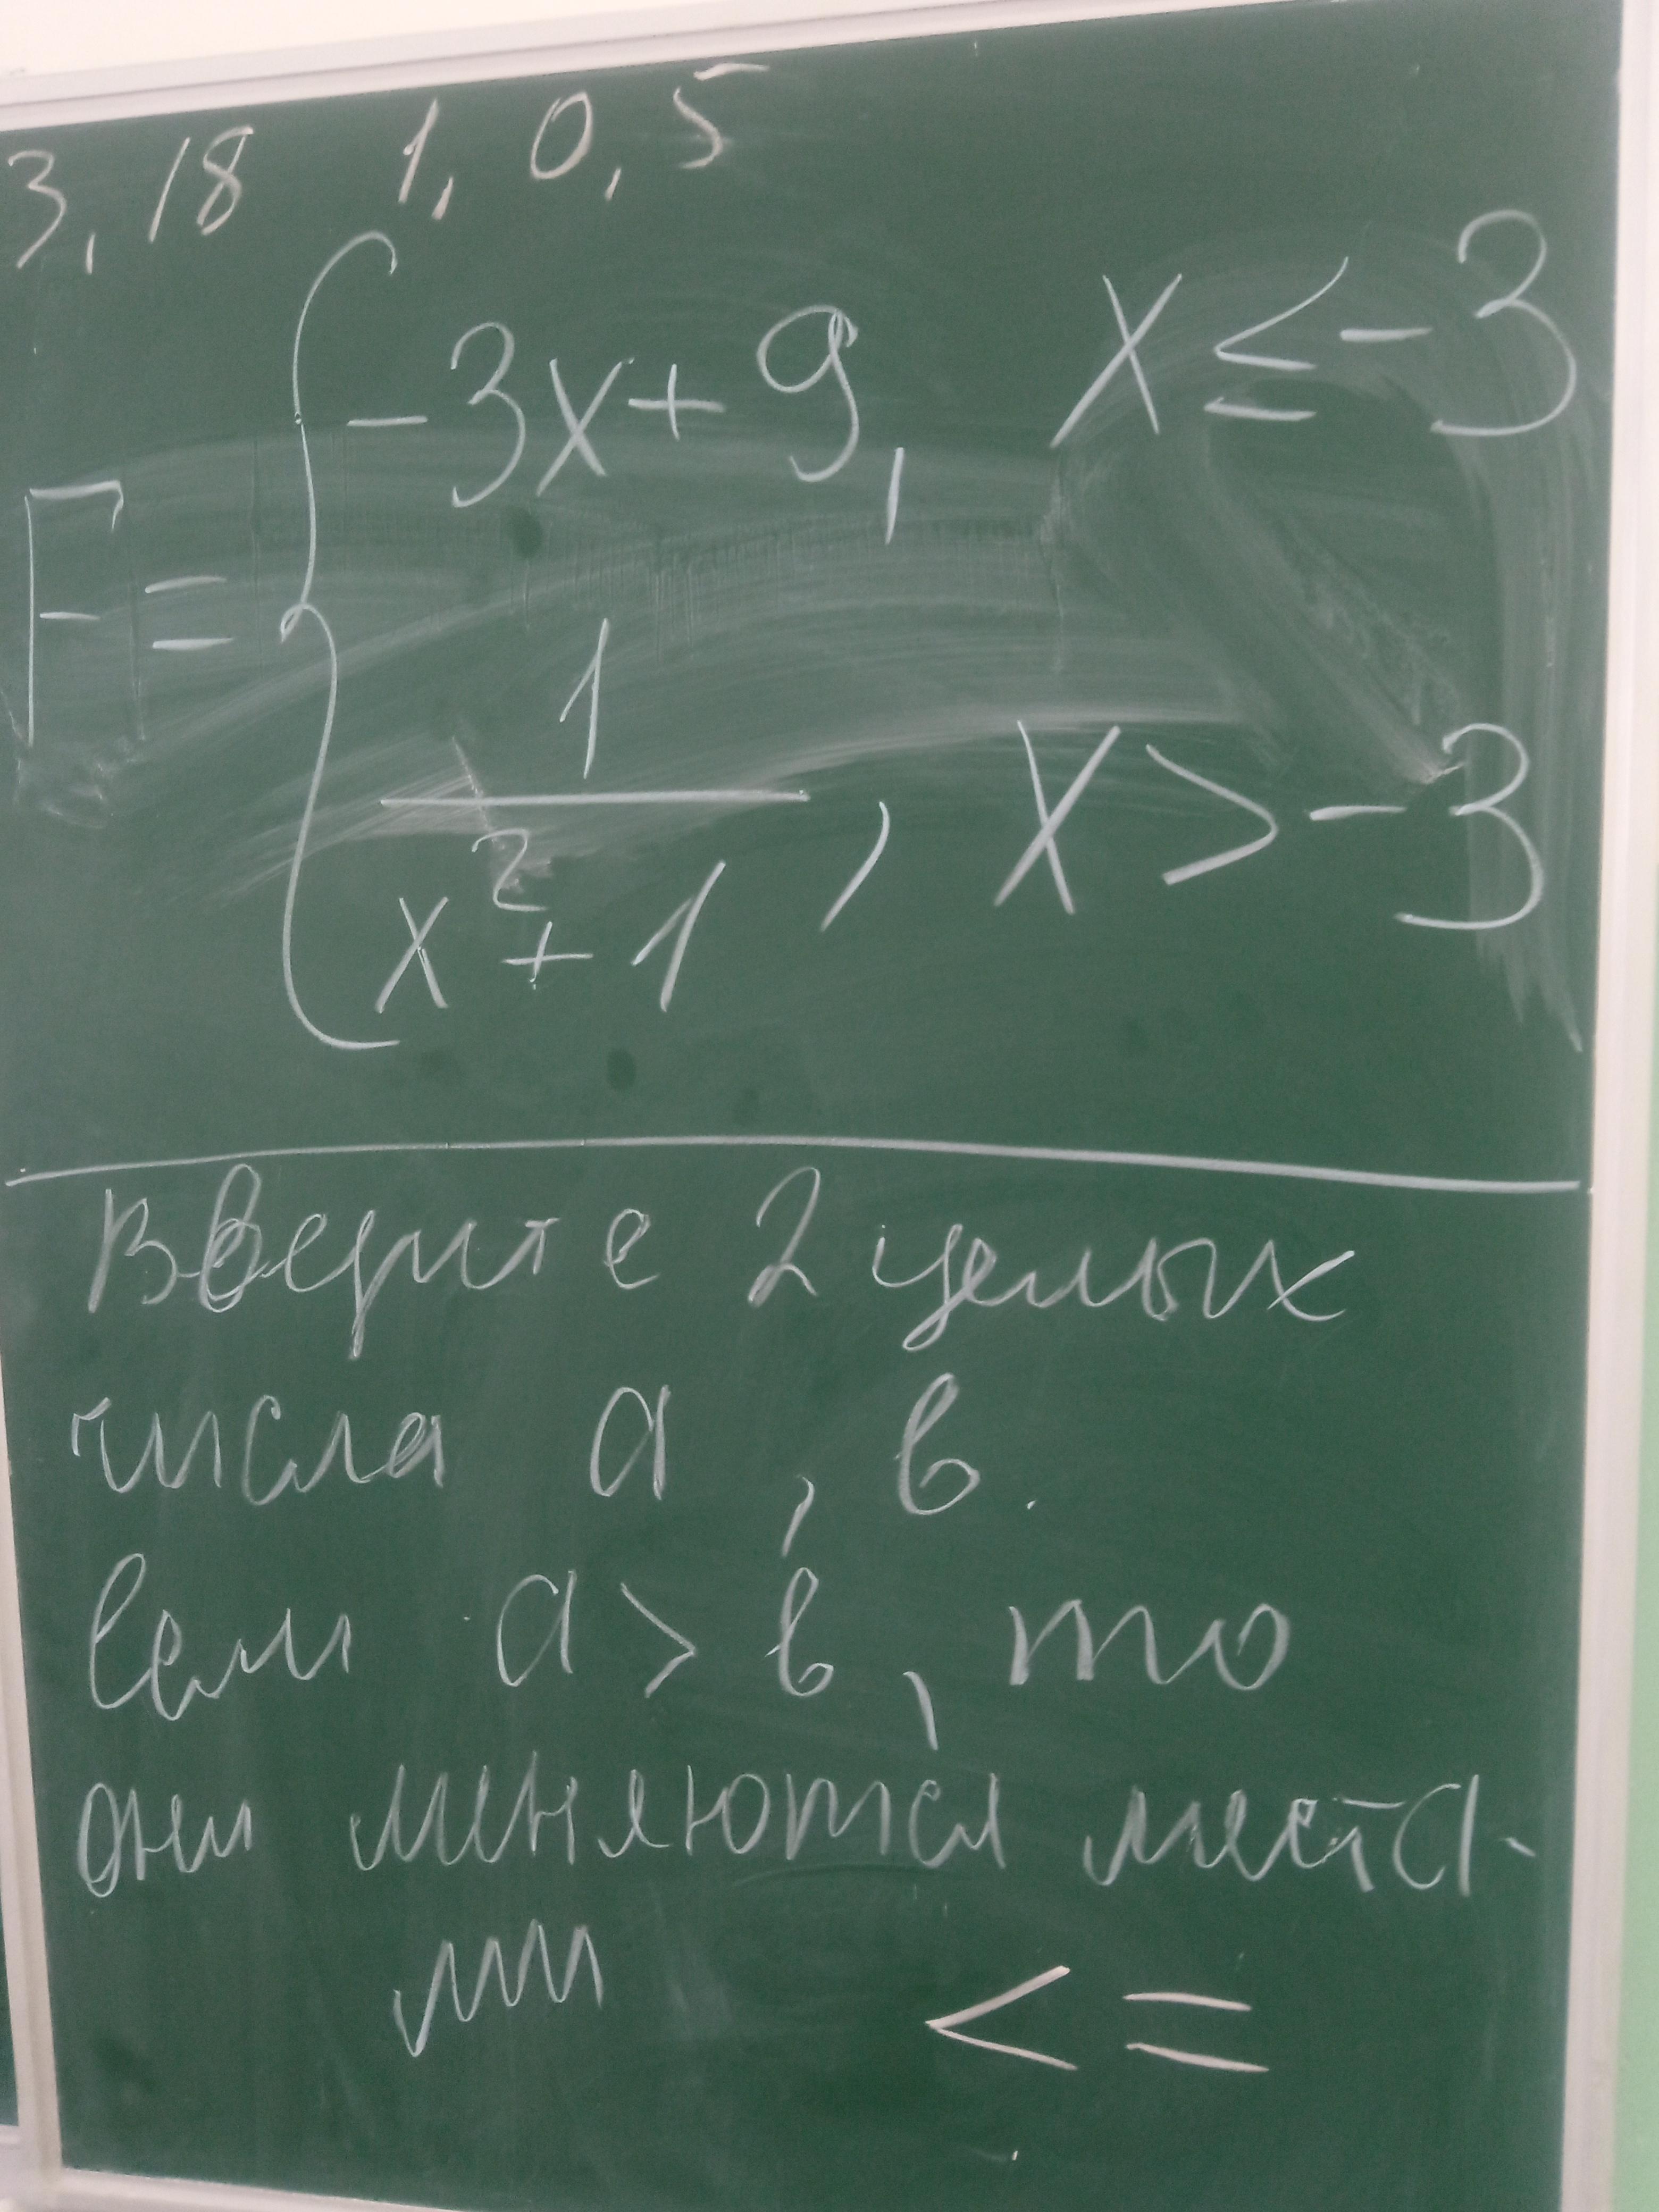 3, 18 1, 0, 5
-3x+9, x ≤ -3
F =
1
x²+1 , x > -3
Введите 2 целых
числа а, в.
Если а > в, то
они меняются места-
ми <=